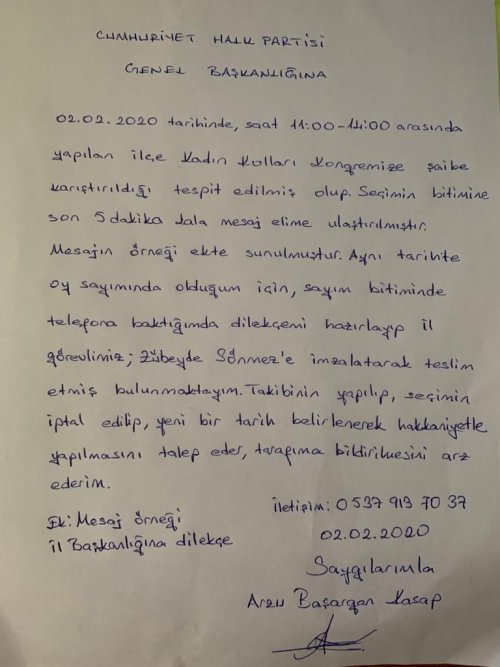 CUMHURİYET HALK PARTİSİ
GENEL BAŞKANLIĞINA
02.02.2020 tarihinde, saat 11:00-14:00 arasında
yapılan ilçe Kadın Kolları Kongremize şaibe
karıştırıldığı tespit edilmiş olup. Seçimin bitimine
son 5 dakika kala mesaj elime ulaştırılmıştır.
Mesajın örneği ekte sunulmuştur. Aynı tarihte
oy sayımında olduğum için, sayım bitiminde
telefona baktığımda dilekçemi hazırlayıp il
görevlimiz; Zübeyde Sönmez'e imzalatarak teslim
etmiş bulunmaktayım. Takibinin yapılıp, seçimin
iptal edilip, yeni bir tarih belirlenerek hakkaniyetle
yapılmasını talep eder, tarafıma bildirilmesini arz
ederim.
İletişim: 0537 913 70 37
Ek: Mesaj örneği
02.02.2020
İl Başkanlığına dilekçe
Saygılarımla
Arzu Başargan Kasap